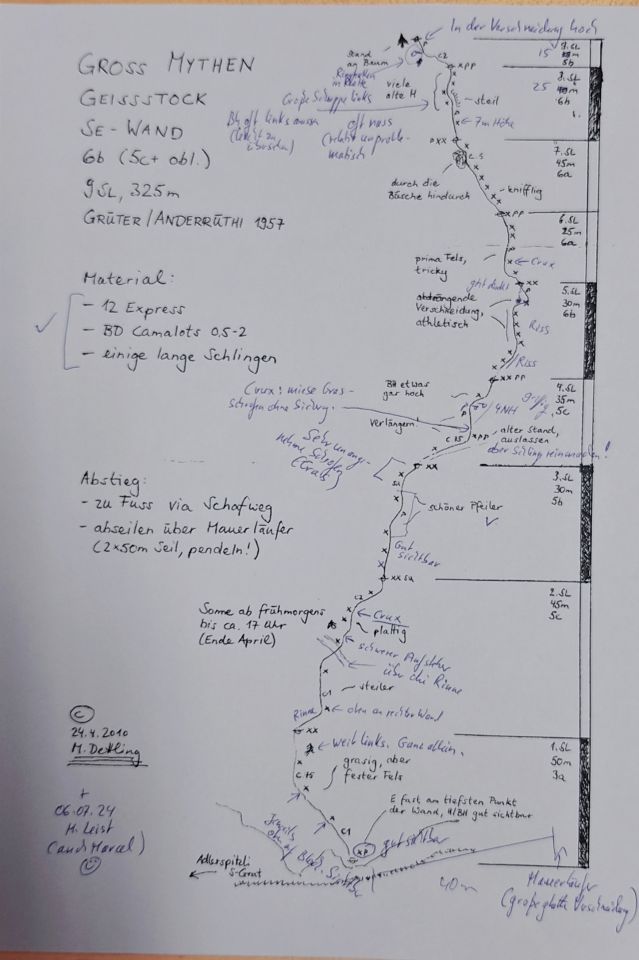 GROSS MYTHEN
GEISSSTOCK
SE-WAND
6b (5c+ obl.)
9 SL, 325m
GRÜTER/ANDERRÜTHI 1957
Material:
- 12 Express
- BD Camalots 0,5-2
- einige lange Schlingen
Abstieg:
- zu Fuss via Schafweg
- abseilen über Mauerläufer
(2x50m Seil, pendeln!)
In der Verschneidung hoch
Stand
an Baum
C2
xpp
15
9.SL
5b
viele
alte H
steil
7m Höhe
25
8.SL
6b
Große Schuppe links
BH oft links aussen
oft nass
C.5
7.SL
45m
6a
durch die
Büsche hindurch
knifflig
pp
6.SL
25m
6a
prima Fels,
tricky
Crux
abdrängende
Verschneidung,
athletisch
Riss
5.SL
30m
6b
Riss
xx pp
BH etwas
gar hoch
4.SL
35m
5c
Crux: miese Gras-
verlängern.
4NH
xpp
alter Stand,
auslassen
C.75
xx
3.SL
30m
5b
su
schöner Pfeiler
Gut
sichtbar
xx su
2.SL
45m
5c
C2
Sonne ab frühmorgens
bis ca. 17 Uhr
(Ende April)
Crux
plattig
schwerer
über die Rinne
steiler
C1
Rinne
oben an rechter Wand
xx
weit links. Ganz allein.
1.SL
50m
3a
C.75
grasig, aber
fester Fels
E fast am tiefsten Punkt
der Wand, H/BH gut sichtbar
C1
xp
gut sichtbar
Adlerspitzli
S-Grat
40m
Mauerläufer
(große glatte Verschneidung)
©
24.4.2010
M. Dettling
+
06.07.24
H. Leist
(auch Marcel)
©